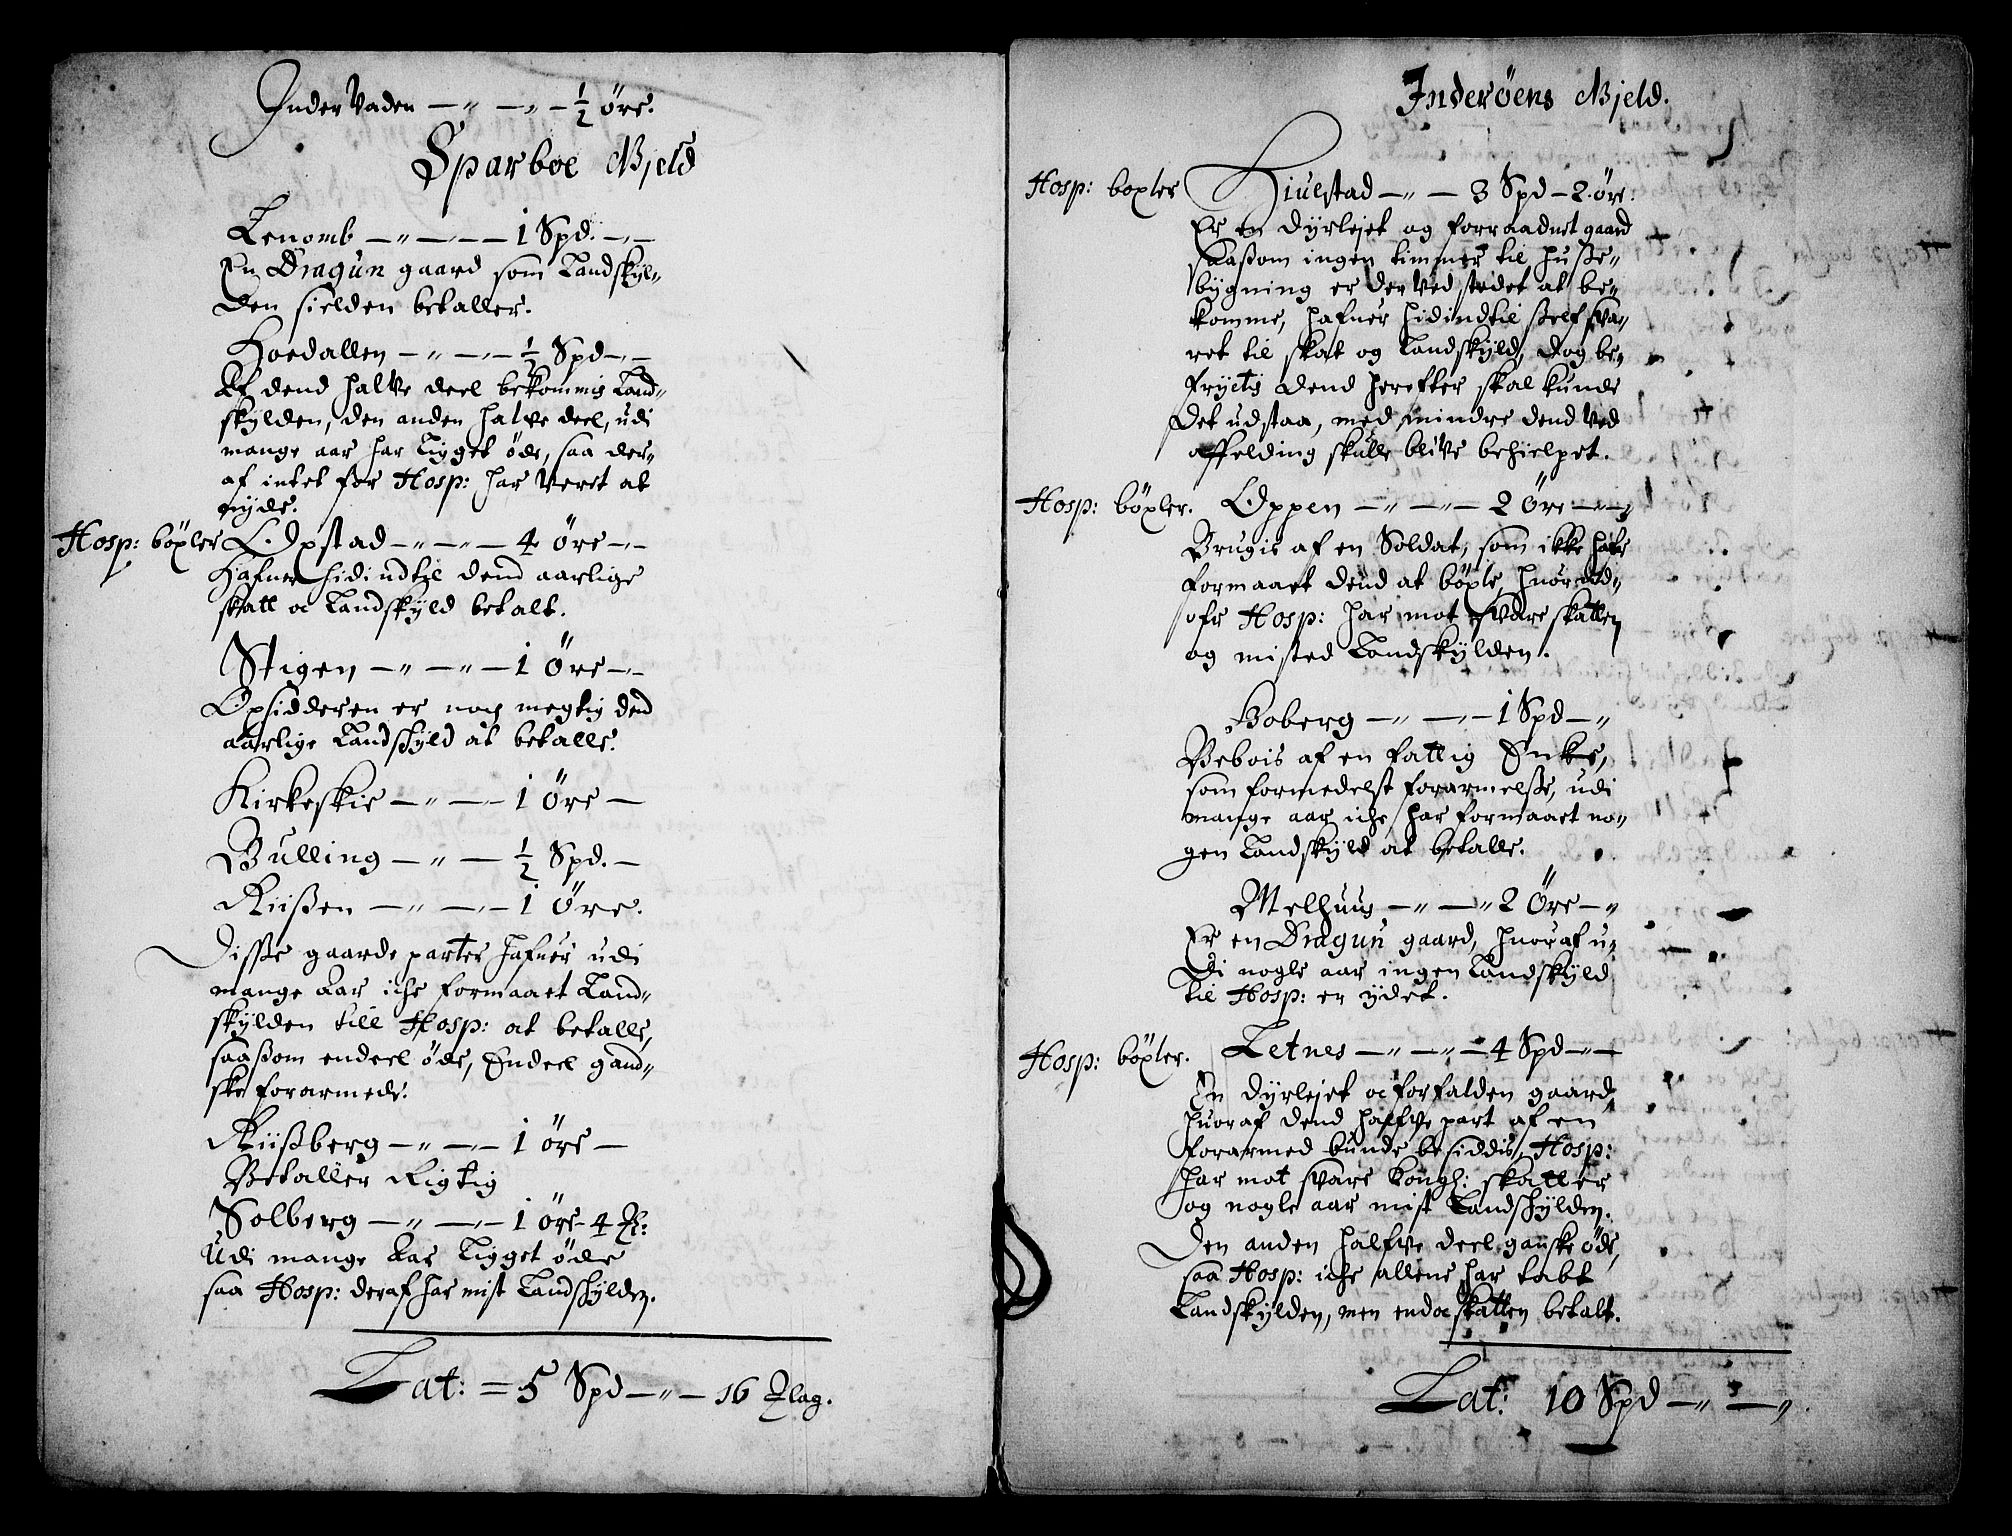 Inder Vaden — " — " — ½ öre.
Sparboe Gjeld
Lenomb — " — " — 1 Spd. — " —
En Dragun gaard som Landskÿl„
den sielden betaller.
Hoedallen — " — " — ½ Spd — " —
Af dend halve deel bekommis Land„
skÿlden, den anden halve deel, udi
mange aar har ligget öde, saa der„
af intet for Hosp: har veret at
nyde.
Hosp: böxler Opstad — " — " — 4 öre — " —
Hafuer hidindtil dend aarlige
skatt oc Landskÿld betalt.
Stigen — " — " — 1 Öre — " —
Opsidderen er noch megtig dend
aarlige Landskÿld at betalle.
Kirkeskie — " — " — 1 Öre —
Bulling — " — ½ Spd. —
Riißen — " — " — 1 Öre.
Disse gaarde parter hafuer udi
mange Aar iche formaaet Land„
skÿlden till Hosp: at betalle,
saaßom endeel öde, Endeel gand„
ske forarmede.
Riißberg — " — " — 1 öre —
Betaller Rigtig
Solberg — " — " — 1 öre - 4 R:
Udi mange Aar ligget öde
saa Hosp: deraf har mist Landskÿlden.
Lat: = 5 Spd — " — 16 Zlag.
Inderöens Gjeld.
Hosp: boxler Hiulstad — " — 3 Spd — 2 öre.
Er en dÿrlejet og forraadnet gaard
saaßom ingen timmer til huße„
bÿgning er der ved stedet at be„
komme, hafuer hidindtil self sva„
ret til skat og Landskÿld, dog be„
frÿctis dend herefter skal kunde
det udstaa, med mindre dend ved
affelding skulle blive behielpet.
Hosp: böxler. Oppen — " — " — 2 Öre — " —
Brugis af en Soldat, som ikke hafr
formaaet dend at böxle, huor
ofr Hosp: har mot svare skatten
og misted Landskÿlden.
Boberg — " — " — 1 Spd — "
Bebois af en fattig Enke,
som formedelst forarmelße, udi
mange aar iche har formaaet no„
gen Landskÿld at betalle.
Melhuus — " — " 2 Öre — "
Er en Dragun gaard, huoraf u„
di nogle aar ingen Landskÿld
til Hosp: er ÿdet.
Hosp: böxler. Letnes — " — " — 4 Spd — " —
En dÿrlejet oc forfalden gaard,
huoraf dend halfve part af en
forarmed bunde besiddis, Hosp:
har mot svare Kongl: skatter
og nogle aar mist Landskÿlden.
Den anden halfve deel ganske öde,
saa Hosp: iche allene har tabt
Landskÿlden, men endoc skatten betalt.
Lat: 10 Spd — " — "